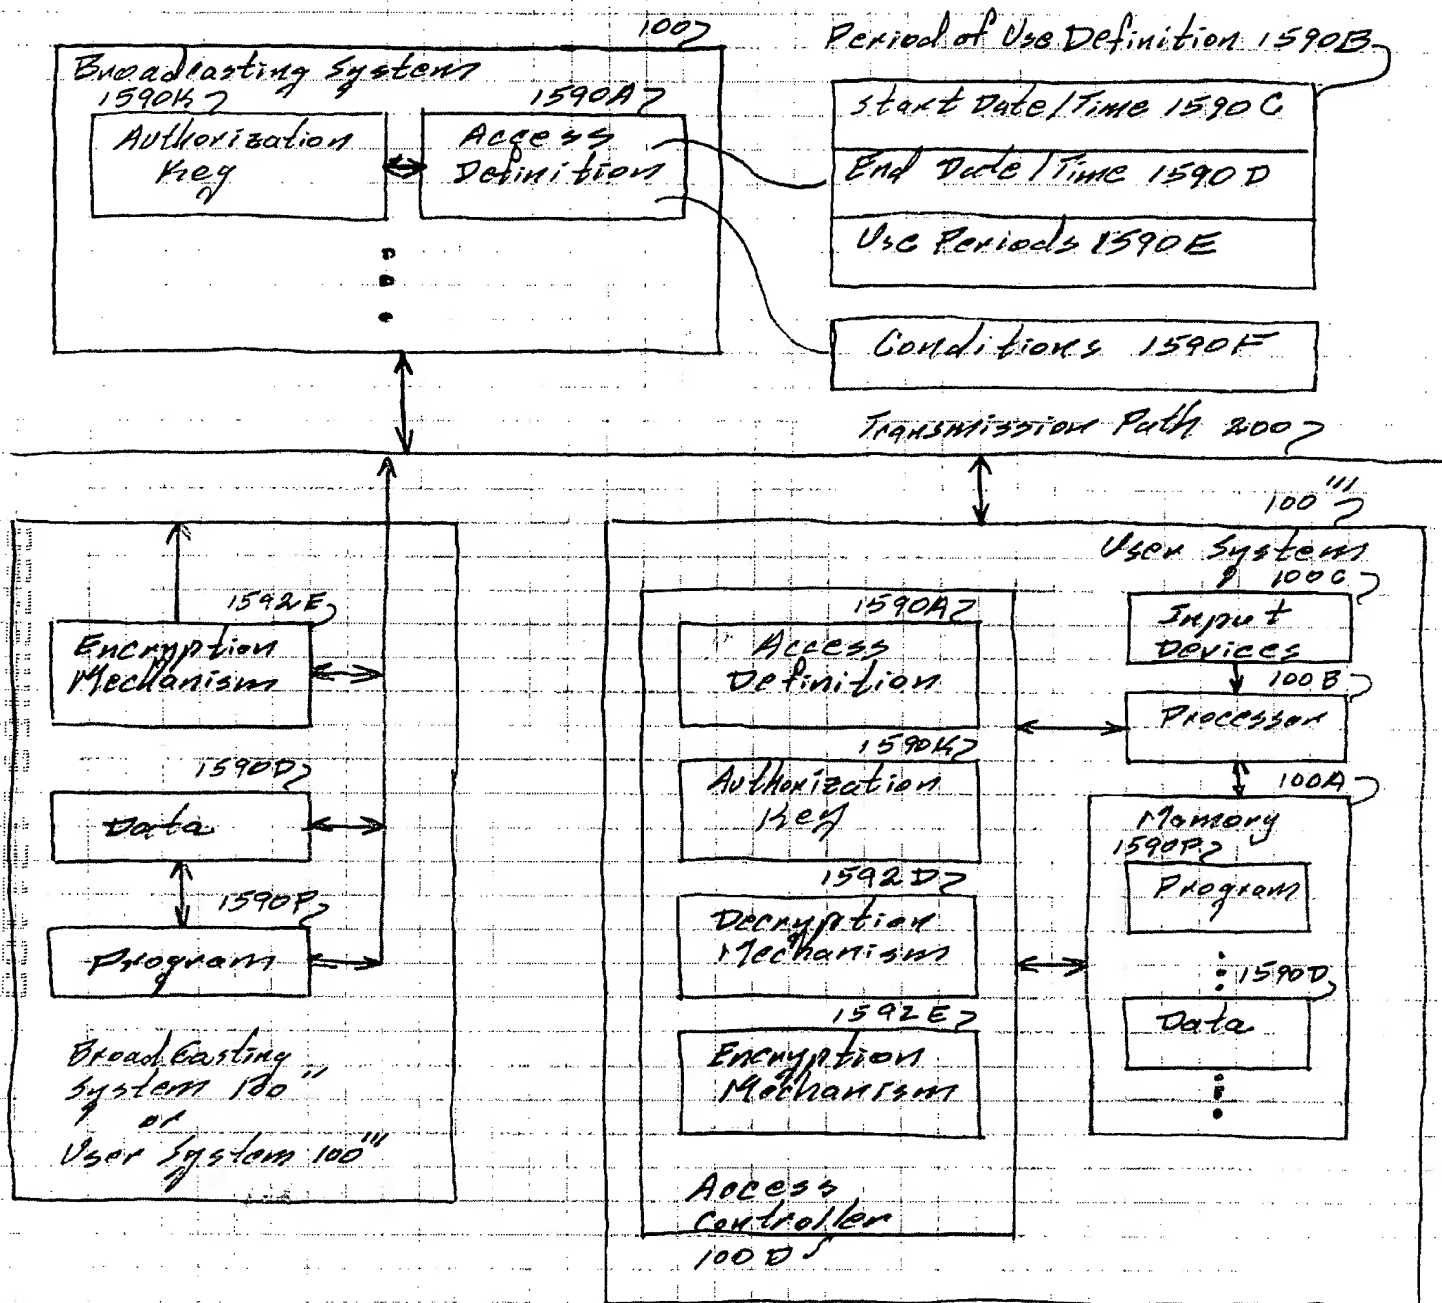 100
Broadcasting System
1590K
1590A
Authorization
Key
Access
Definition
Period of Use Definition 1590B
Start Date/Time 1590C
End Date/Time 1590D
Use Periods 1590E
Conditions 1590F
Transmission Path 200
1592E
Encryption
Mechanism
1590D
Data
1590P
Program
BroadCasting
System 100"
or
User System 100'''
100'''
User System
1590A
Access
Definition
1590K
Authorization
Key
1592D
Decryption
Mechanism
1592E
Encryption
Mechanism
Access
Controller
100D
100C
Input
Devices
100B
Processor
100A
Memory
1590P
Program
1590D
Data